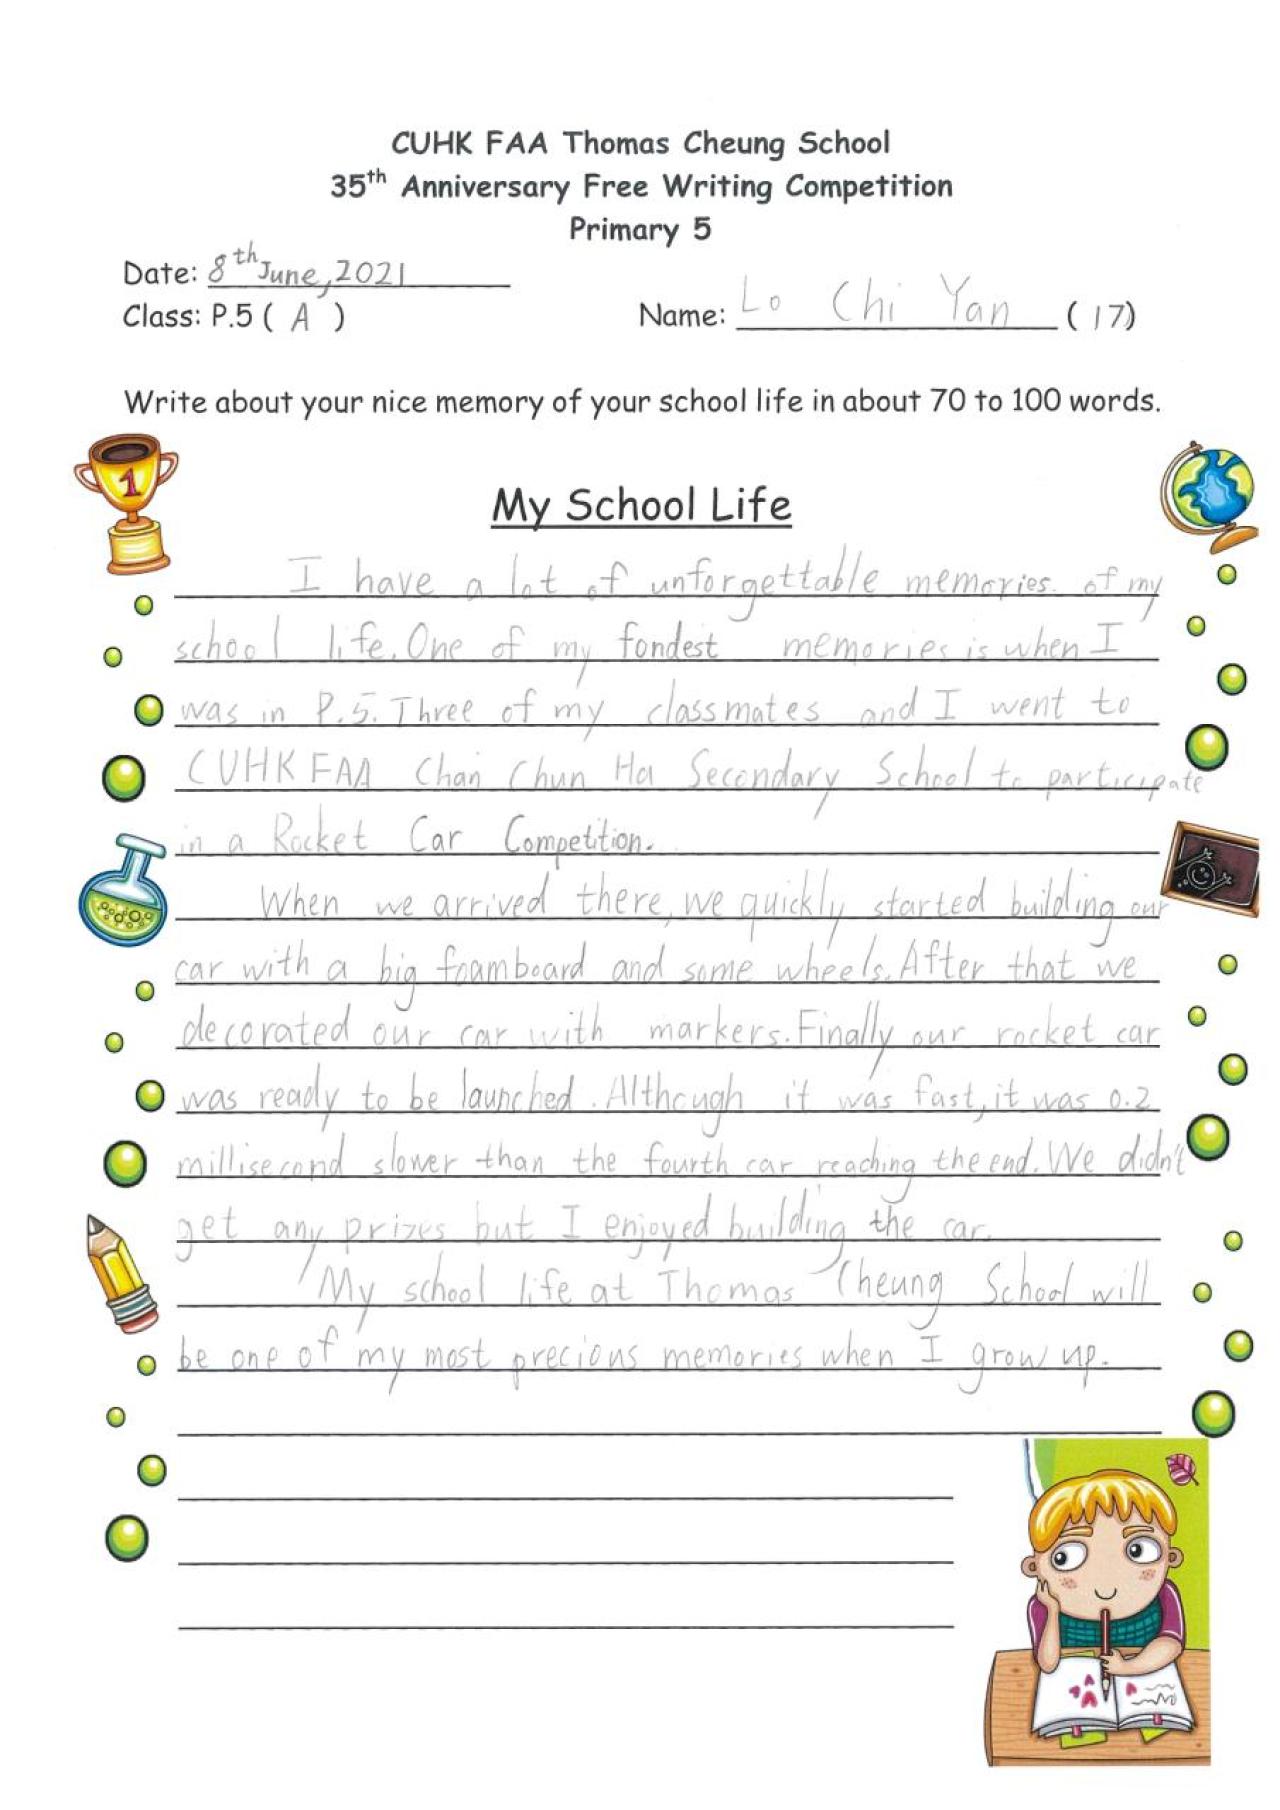 CUHK FAA Thomas Cheung School
35th Anniversary Free Writing Competition
Primary 5
Date: 8th June, 2021
Class: P.5 ( A )
Name: Lo Chi Yan (17)
Write about your nice memory of your school life in about 70 to 100 words.
1
My School Life
I have a lot of unforgettable memories. of my
school life. One of my fondest memories is when I
was in P.5. Three of my classmates and I went to
CUHK FAA Chan Chun Ha Secondary School to participate
in a Rocket Car Competition.
When we arrived there, we quickly started building our
car with a big foamboard and some wheels. After that we
decorated our car with markers. Finally our rocket car
was ready to be launched. Although it was fast, it was 0.2
millisecond slower than the fourth car reaching the end. We didn't
get any prizes but I enjoyed building the car.
My school life at Thomas Cheung School will
be one of my most precious memories when I grow up.